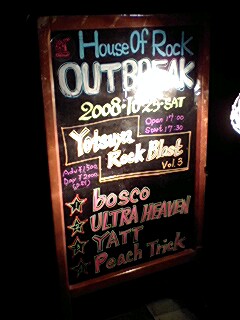 House Of Rock
OUTBREAK
2008・10・25・SAT
Open 17:00
Start 17:30
Yotsuya
Rock Blast
Vol. 3
Adv ¥1500
Day ¥2000
bosco
ULTRA HEAVEN
YATT
Peach Trick